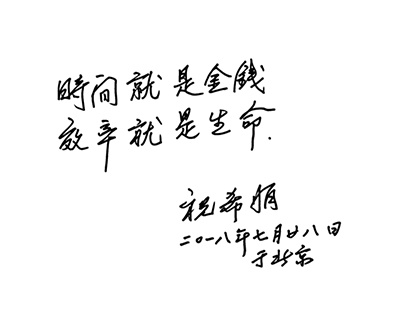 時间就是金錢
效率就是生命.
祝希娟
二〇一八年七月廿八日
于北京